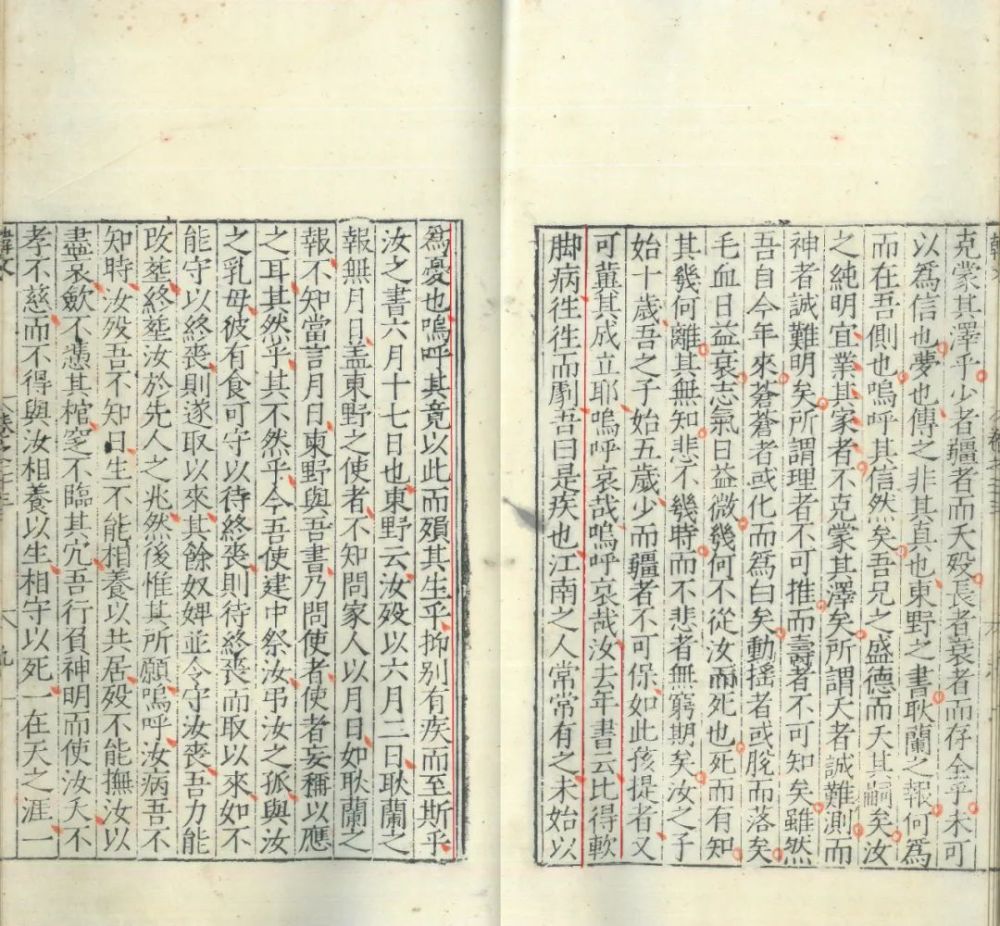 克蒙其澤乎少者彊者而夭殁長者衰者而存全乎未可
以爲信也夢也傳之非其真也東野之書耿蘭之報何爲
而在吾側也嗚呼其信然矣吾兄之盛德而夭其嗣矣汝
之純明宜業其家者不克蒙其澤矣所謂天者誠難測而
神者誠難明矣所謂理者不可推而壽者不可知矣雖然
吾自今年來蒼蒼者或化而爲白矣動揺者或脫而落矣
毛血日益衰志氣日益微幾何不從汝而死也死而有知
其幾何離其無知悲不幾時而不悲者無窮期矣汝之子
始十歲吾之子始五歲少而彊者不可保如此孩提者又
可冀其成立耶嗚呼哀哉嗚呼哀哉汝去年書云比得軟
脚病徃徃而劇吾曰是疾也江南之人常常有之未始以
爲憂也嗚呼其竟以此而殞其生乎抑别有疾而至斯乎
汝之書六月十七日也東野云汝殁以六月二日耿蘭之
報無月日盖東野之使者不知問家人以月日如耿蘭之
報不知當言月日東野與吾書乃問使者使者妄稱以應
之耳其然乎其不然乎今吾使建中祭汝弔汝之孤與汝
之乳母彼有食可守以待終喪則待終喪而取以來如不
能守以終喪則遂取以來其餘奴婢並令守汝喪吾力能
攺塟終塟汝於先人之兆然後惟其所願嗚呼汝病吾不
知時汝殁吾不知日生不能相養以共居殁不能撫汝以
盡哀斂不憑其棺窆不臨其穴吾行負神明而使汝夭不
孝不慈而不得與汝相養以生相守以死一在天之涯一